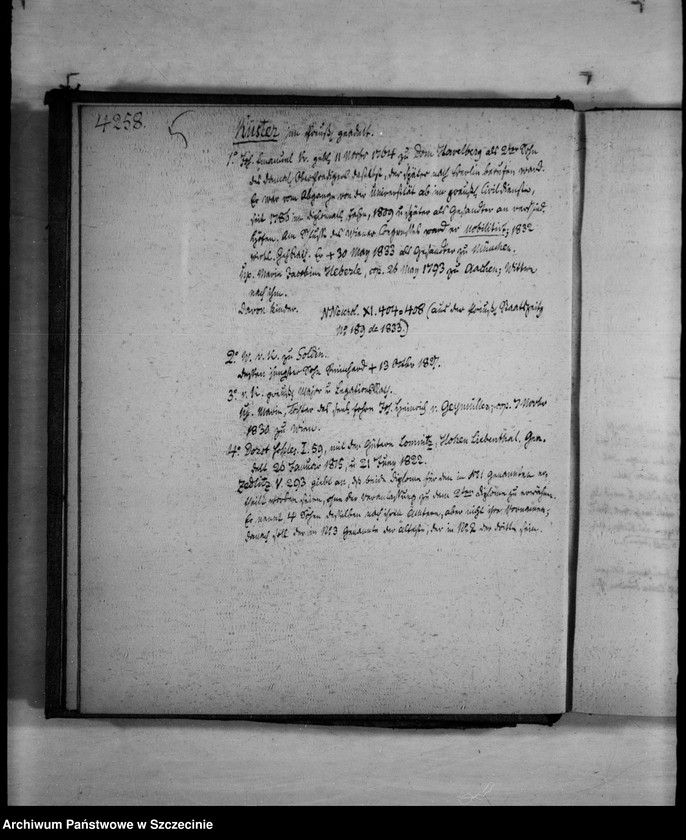 4258.
Küster im Preuß. geadelt.
1.° Joh. Emanuel K. gebh. 11 Novbr 1764 zu Dom Havelberg als 2ter Sohn
des damal. Oberpredigers daselbst, der später nach Berlin berufen ward.
Er war vom Abgange von der Universität ab im preuß. Civildienste,
seit 1786 im diplomat. Fache, 1809 u später als Gesandter an verschied.
Höfen. Am Schlusse des Wiener Congresses ward er Nobilitirt; 1832
wirkl. Geh. Rath. Er + 30 May 1833 als Gesandter zu München.
Up. Maria Jacobina Heberle, cop. 26 May 1793 zu Aachen; Wittwe
nach ihm.
Davon Kinder. NNecrol. XI. 404=408 (aus der Preuß. Staatszeitg
N° 189 de 1833.)
2° v. K. zu Soldin.
dessen jüngster Sohn + 13 Octbr 1827.
3° v. K. preuß. Major u LegationsRath.
Up. Maria, Tochter des Joh. Heinrich v. Geymüller, cop. 7 Novbr
1830 zu Wien.
4° Dorst Schles. I. 59, mit den Gütern Lomnitz, Hohen Liebenthal. Gea-
delt 26 Januar 1815, u 21 Juny 1822.
Zedlitz V. 293 giebt an, daß beide Diplome für den in N°1 Genannten er-
theilt worden seien, ohne der Veranlassung zu dem 2ten Diplome zu erwähnen.
Er nennt 4 Söhne desselben nach ihren Ämtern, aber nicht ihre Vornamen;
danach soll der in N° 3 Genannte der Älteste, der in N° 2 der dritte sein.
Archiwum Państwowe w Szczecinie